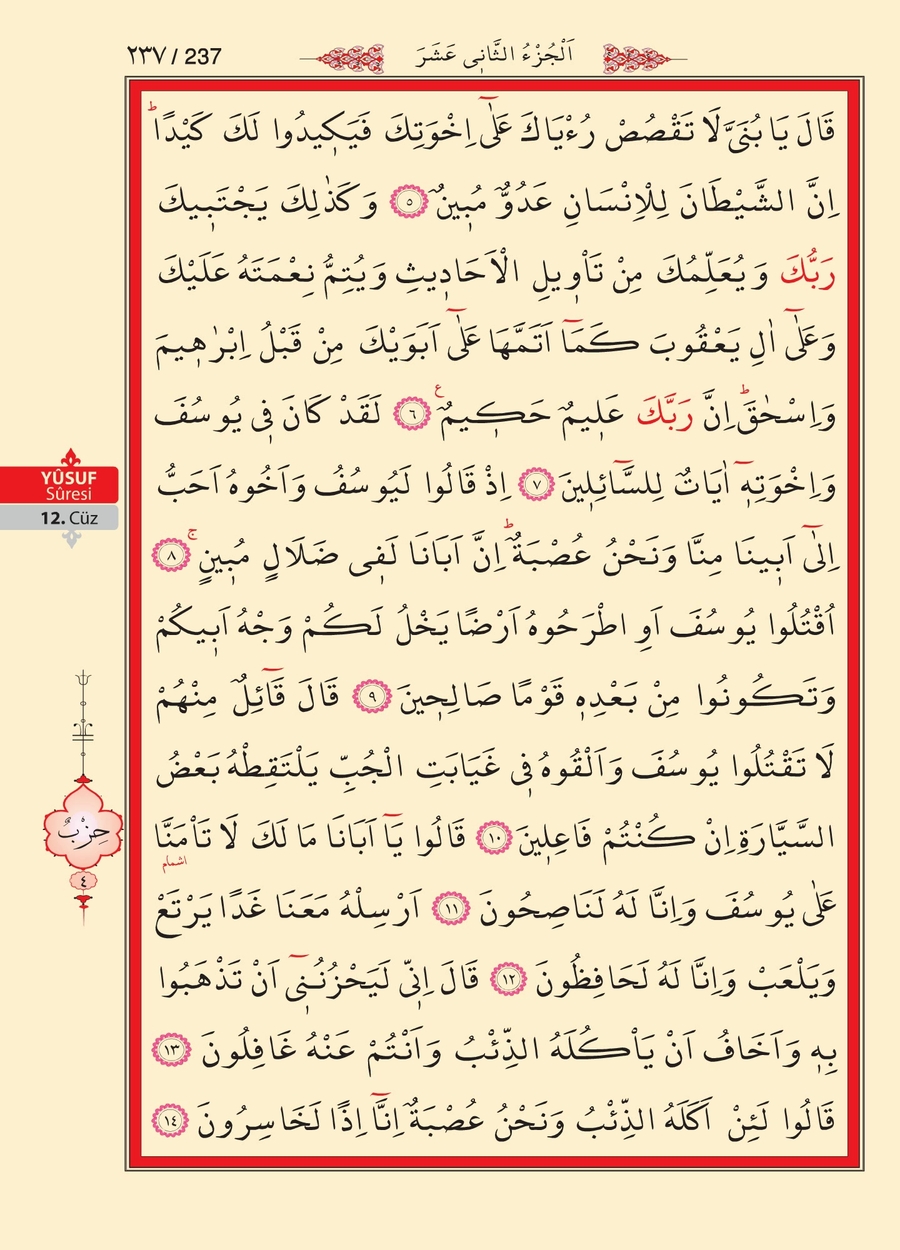 ٢٣٧ / 237
اَلْجُزْءُ الثَّانٖى عَشَرَ
قَالَ يَا بُنَىَّ لَا تَقْصُصْ رُءْيَاكَ عَلٰٓى اِخْوَتِكَ فَيَكٖيدُوا لَكَ كَيْدًاؕ
اِنَّ الشَّيْطَانَ لِلْاِنْسَانِ عَدُوٌّ مُبٖينٌ ﴿٥﴾ وَكَذٰلِكَ يَجْتَبٖيكَ
رَبُّكَ وَيُعَلِّمُكَ مِنْ تَاْوٖيلِ الْاَحَادٖيثِ وَيُتِمُّ نِعْمَتَهُ عَلَيْكَ
وَعَلٰٓى اٰلِ يَعْقُوبَ كَمَٓا اَتَمَّهَا عَلٰٓى اَبَوَيْكَ مِنْ قَبْلُ اِبْرٰهٖيمَ
وَاِسْحٰقَؕ اِنَّ رَبَّكَ عَلٖيمٌ حَكٖيمٌࣖ ﴿٦﴾ لَقَدْ كَانَ فٖى يُوسُفَ
وَاِخْوَتِهٖٓ اٰيَاتٌ لِلسَّٓائِلٖينَ ﴿٧﴾ اِذْ قَالُوا لَيُوسُفُ وَاَخُوهُ اَحَبُّ
اِلٰٓى اَبٖينَا مِنَّا وَنَحْنُ عُصْبَةٌؕ اِنَّ اَبَانَا لَفٖى ضَلَالٍ مُبٖينٍۚ ﴿٨﴾
اُقْتُلُوا يُوسُفَ اَوِ اطْرَحُوهُ اَرْضًا يَخْلُ لَكُمْ وَجْهُ اَبٖيكُمْ
وَتَكُونُوا مِنْ بَعْدِهٖ قَوْمًا صَالِحٖينَ ﴿٩﴾ قَالَ قَٓائِلٌ مِنْهُمْ
لَا تَقْتُلُوا يُوسُفَ وَاَلْقُوهُ فٖى غَيَابَتِ الْجُبِّ يَلْتَقِطْهُ بَعْضُ
السَّيَّارَةِ اِنْ كُنْتُمْ فَاعِلٖينَ ﴿١٠﴾ قَالُوا يَٓا اَبَانَا مَا لَكَ لَا تَاْمَنَّا
اشمام
عَلٰى يُوسُفَ وَاِنَّا لَهُ لَنَاصِحُونَ ﴿١١﴾ اَرْسِلْهُ مَعَنَا غَدًا يَرْتَعْ
وَيَلْعَبْ وَاِنَّا لَهُ لَحَافِظُونَ ﴿١٢﴾ قَالَ اِنّٖى لَيَحْزُنُنٖٓى اَنْ تَذْهَبُوا
بِهٖ وَاَخَافُ اَنْ يَاْكُلَهُ الذِّئْبُ وَاَنْتُمْ عَنْهُ غَافِلُونَ ﴿١٣﴾
قَالُوا لَئِنْ اَكَلَهُ الذِّئْبُ وَنَحْنُ عُصْبَةٌ اِنَّٓا اِذًا لَخَاسِرُونَ ﴿١٤﴾
YÛSUF
Sûresi
12. Cüz
حِزْبٌ
٤